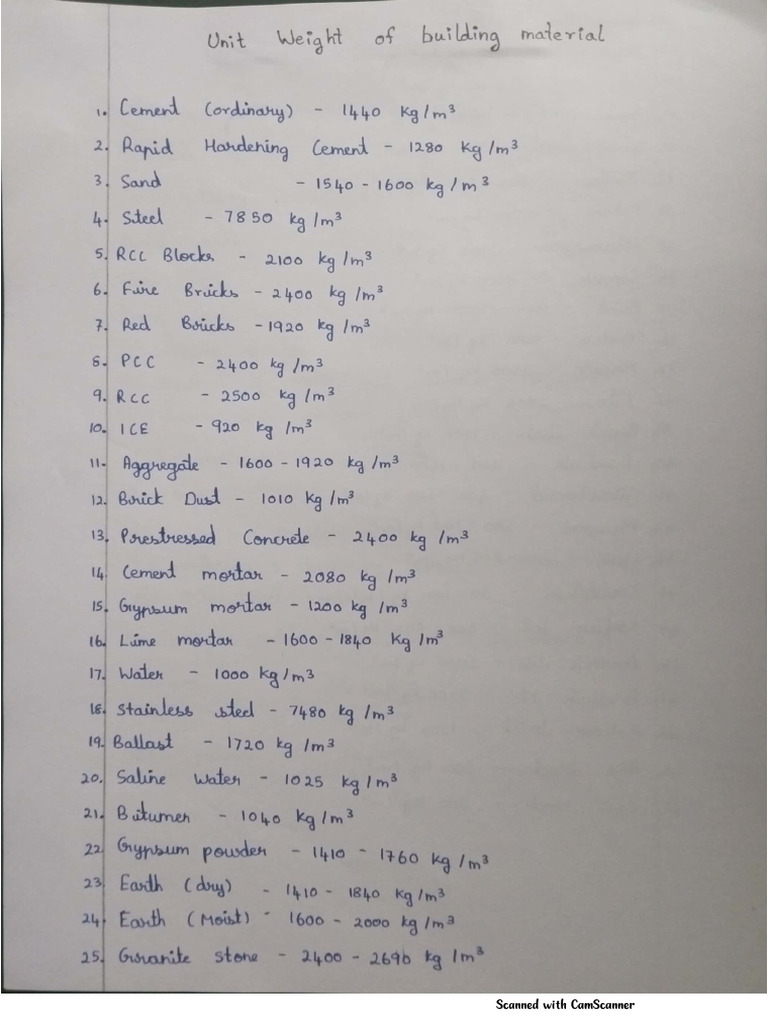 Unit Weight of building material
1. Cement (ordinary) - 1440 kg/m³
2. Rapid Hardening Cement - 1280 kg/m³
3. Sand - 1540 - 1600 kg/m³
4. Steel - 7850 kg/m³
5. RCC Blocks - 2100 kg/m³
6. Fire Bricks - 2400 kg/m³
7. Red Bricks - 1920 kg/m³
8. PCC - 2400 kg/m³
9. RCC - 2500 kg/m³
10. ICE - 920 kg/m³
11. Aggregate - 1600 - 1920 kg/m³
12. Brick Dust - 1010 kg/m³
13. Prestressed Concrete - 2400 kg/m³
14. Cement mortar - 2080 kg/m³
15. Gypsum mortar - 1200 kg/m³
16. Lime mortar - 1600 - 1840 Kg/m³
17. Water - 1000 kg/m³
18. Stainless steel - 7480 kg/m³
19. Ballast - 1720 kg/m³
20. Saline Water - 1025 kg/m³
21. Bitumen - 1040 kg/m³
22. Gypsum powder - 1410 - 1760 kg/m³
23. Earth (dry) - 1410 - 1840 kg/m³
24. Earth (Moist) - 1600 - 2000 kg/m³
25. Granite stone - 2400 - 2690 kg/m³
Scanned with CamScanner